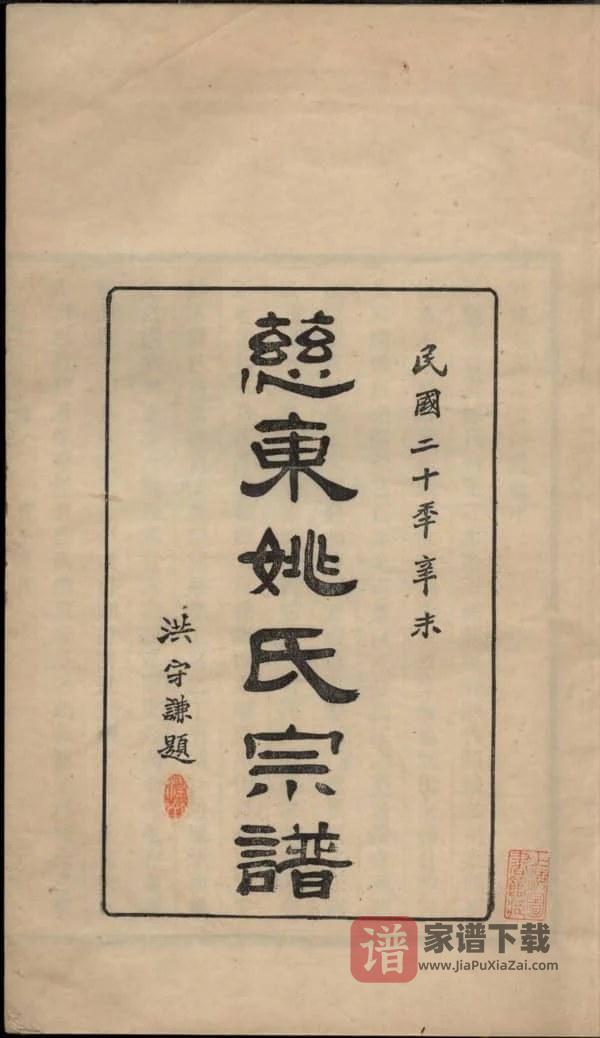 民國二十秊辛未
慈東姚氏宗譜
洪守謙題
上海圖
書館藏
谱
家谱下载
www.JiaPuXiaZai.com